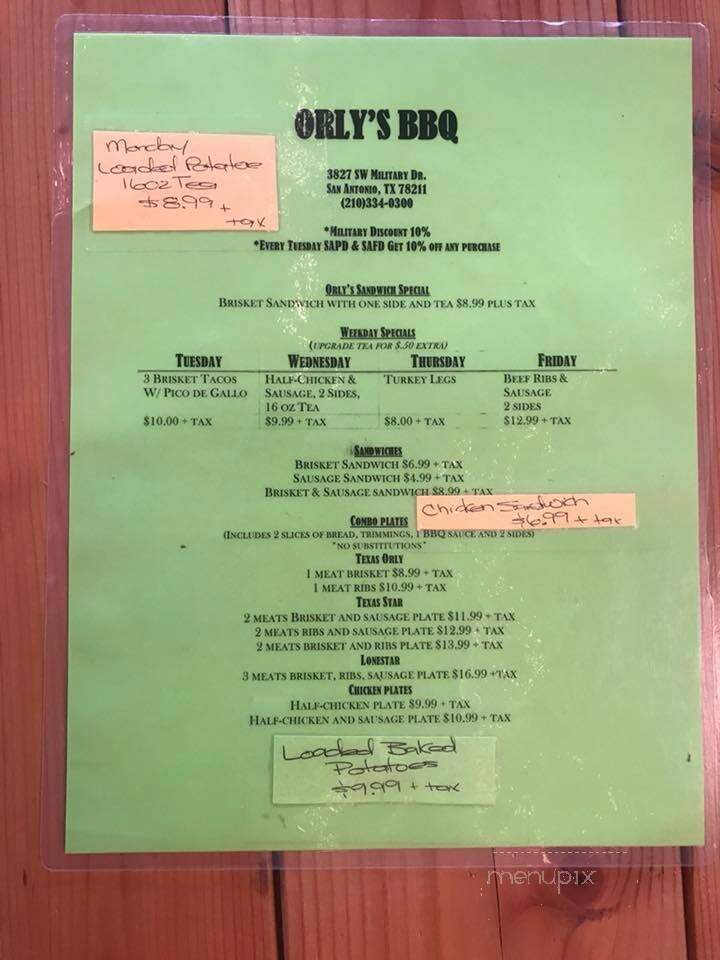 ORLY'S BBQ
Monday
Loaded Potatoe
16oz Tea
$8.99 +
+ax
3827 SW MILITARY DR.
SAN ANTONIO, TX 78211
(210)334-0300
*MILITARY DISCOUNT 10%
*EVERY TUESDAY SAPD & SAFD GET 10% OFF ANY PURCHASE
ORLY'S SANDWICH SPECIAL
BRISKET SANDWICH WITH ONE SIDE AND TEA $8.99 PLUS TAX
WEEKDAY SPECIALS
(UPGRADE TEA FOR $.50 EXTRA)
TUESDAY
3 BRISKET TACOS
W/ PICO DE GALLO
$10.00 + TAX
WEDNESDAY
HALF-CHICKEN &
SAUSAGE, 2 SIDES,
16 OZ TEA
$9.99 + TAX
THURSDAY
TURKEY LEGS
$8.00 + TAX
FRIDAY
BEEF RIBS &
SAUSAGE
2 SIDES
$12.99 + TAX
SANDWICHES
BRISKET SANDWICH $6.99 + TAX
SAUSAGE SANDWICH $4.99 + TAX
BRISKET & SAUSAGE SANDWICH $8.99 + TAX
Chicken Sandwich
$6.99 + tax
COMBO PLATES
(INCLUDES 2 SLICES OF BREAD, TRIMMINGS, 1 BBQ SAUCE AND 2 SIDES)
"NO SUBSTITUTIONS"
TEXAS ORLY
1 MEAT BRISKET $8.99 + TAX
1 MEAT RIBS $10.99 + TAX
TEXAS STAR
2 MEATS BRISKET AND SAUSAGE PLATE $11.99 + TAX
2 MEATS RIBS AND SAUSAGE PLATE $12.99 + TAX
2 MEATS BRISKET AND RIBS PLATE $13.99 + TAX
LONESTAR
3 MEATS BRISKET, RIBS, SAUSAGE PLATE $16.99 +TAX
CHICKEN PLATES
HALF-CHICKEN PLATE $9.99 + TAX
HALF-CHICKEN AND SAUSAGE PLATE $10.99 + TAX
Loaded Baked
Potatoes
$9.99 + tax
menupix